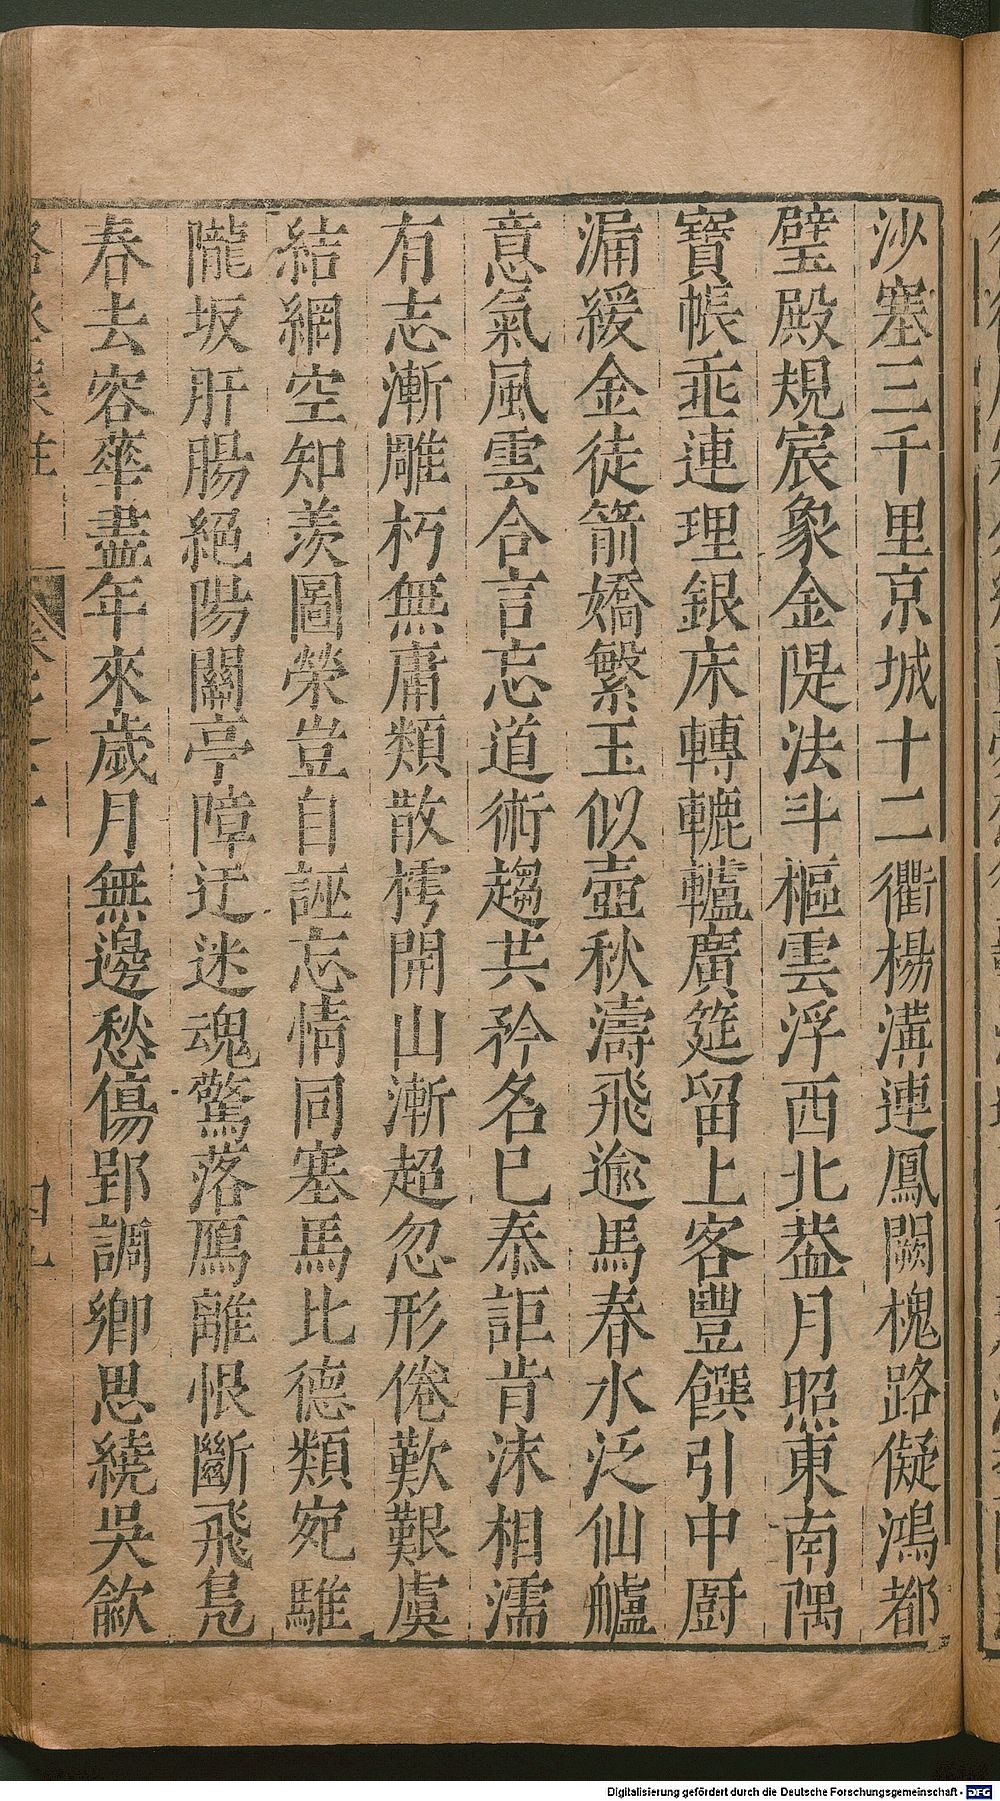 沙塞三千里京城十二衢楊溝連鳳闕槐路儗鴻都
璧殿規宸象金隄法斗樞雲浮西北葢月照東南隅
寶帳乖連理銀床轉轆轤廣筵留上客豐饌引中厨
漏緩金徒箭嬌繫玉似壺秋濤飛逾馬春水泛仙艫
意氣風雲合言忘道術趨共矜名已泰詎肯沫相濡
有志漸雕朽無庸類散樗開山漸超忽形倦歎艱虞
結網空知羡圖榮豈自誣忘情同塞馬比德類宛騅
隴坂肝腸絕陽關亭障迂迷魂驚落鴈離恨斷飛鳧
春去容華盡年來歲月無邊愁傷郢調鄉思繞吳歈
Digitalisierung gefördert durch die Deutsche Forschungsgemeinschaft - DFG